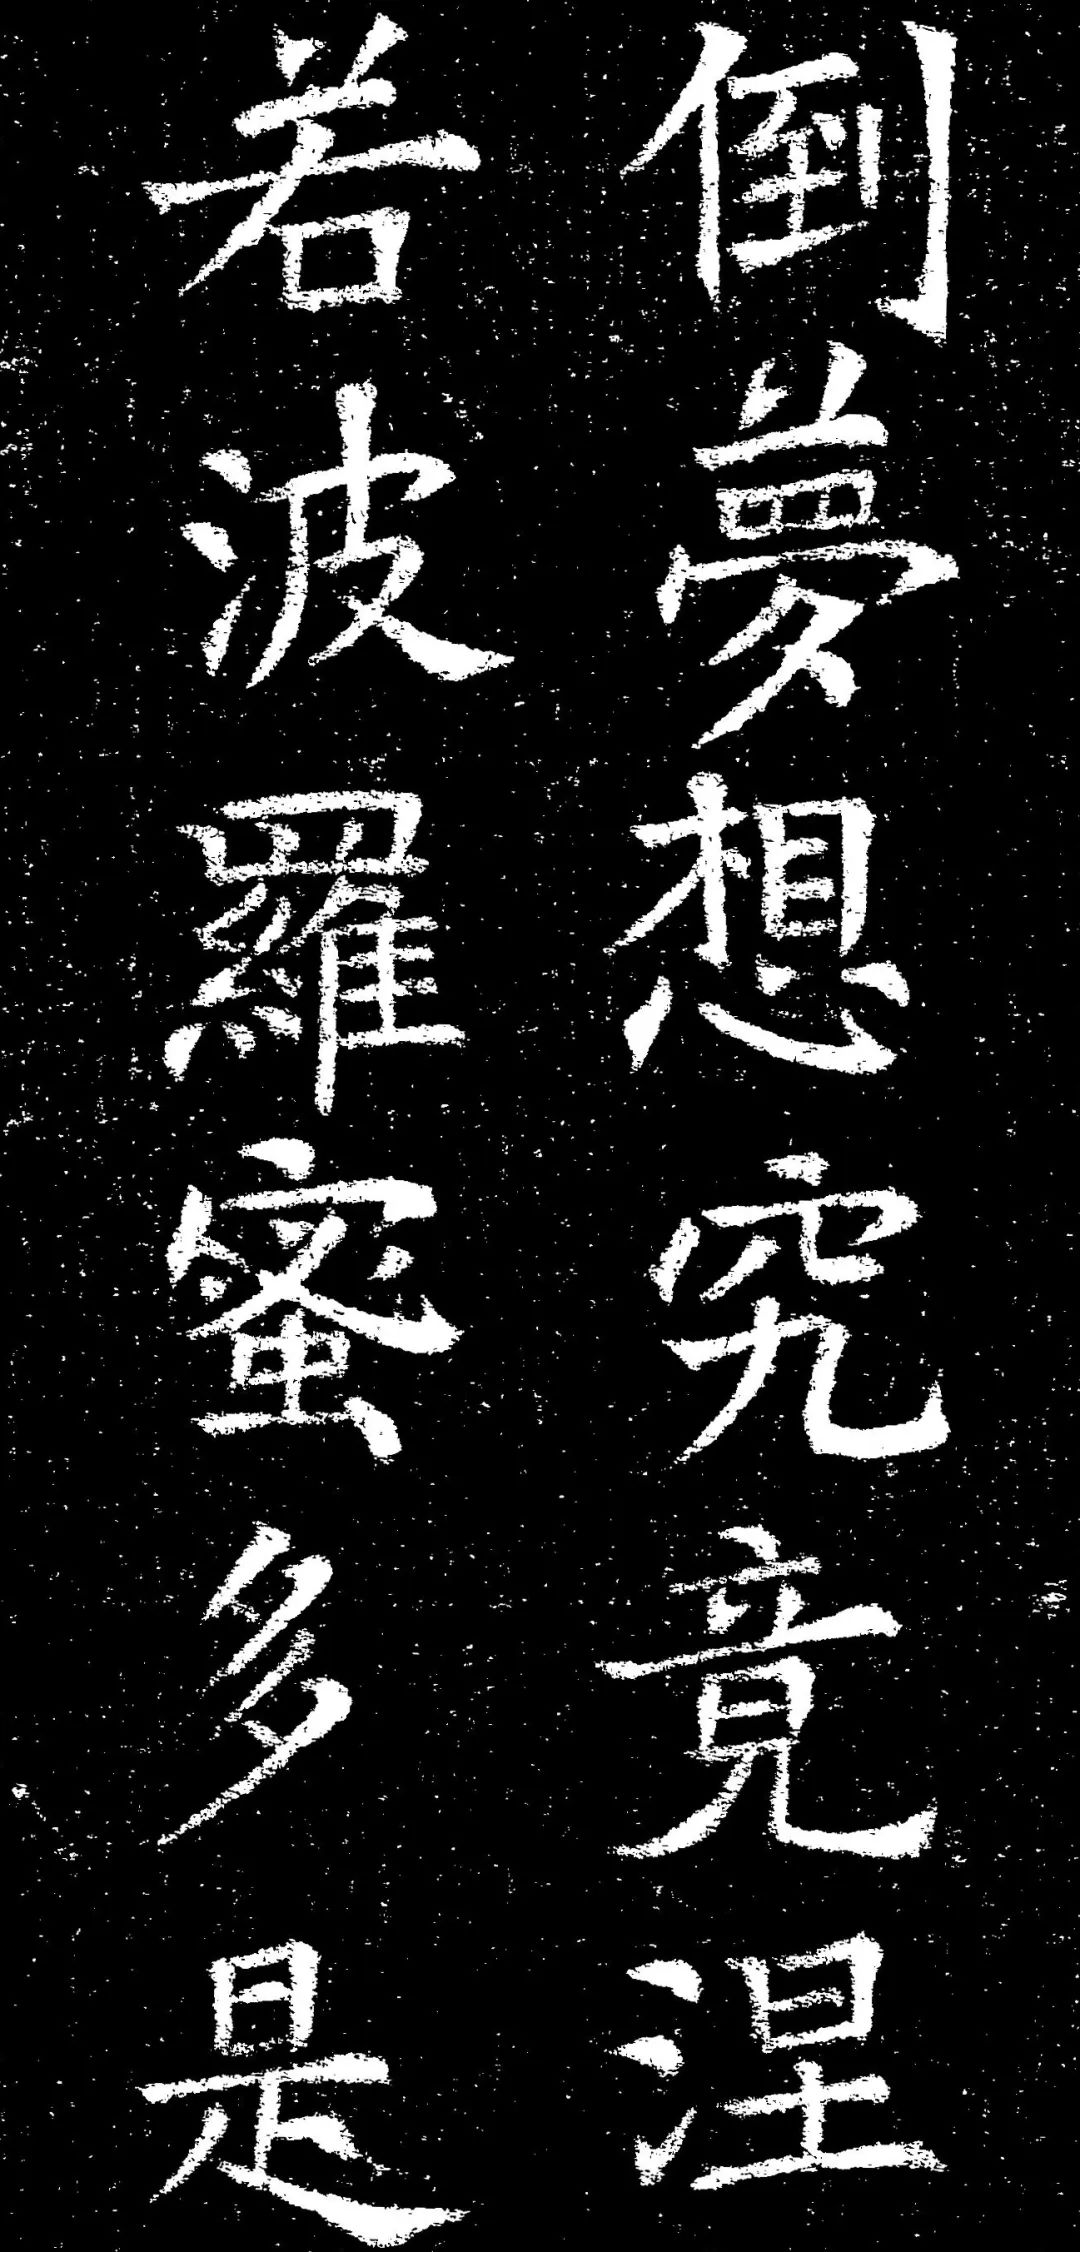 倒夢想究竟涅
若波羅蜜多是